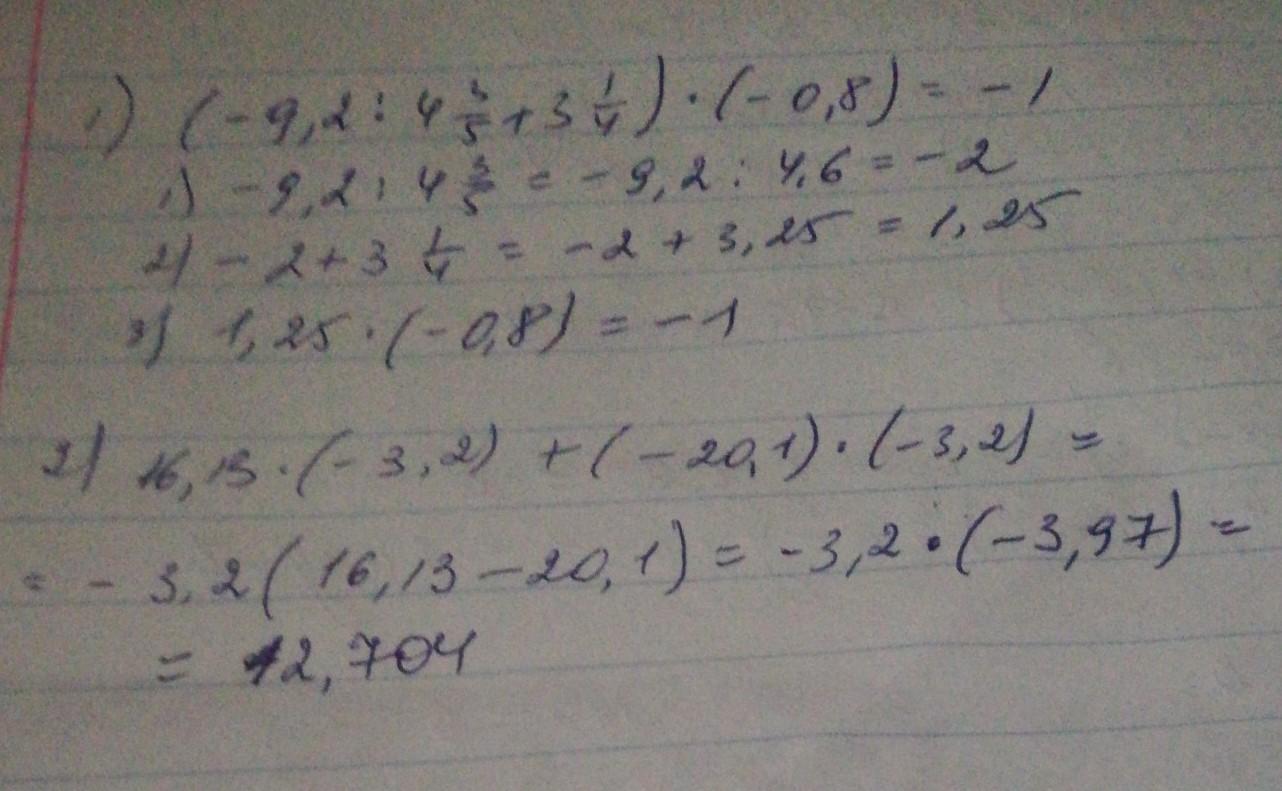 1) (-9,2 : 4 3/5 + 3 1/4) · (-0,8) = -1
1) -9,2 : 4 3/5 = -9,2 : 4,6 = -2
2) -2 + 3 1/4 = -2 + 3,25 = 1,25
3) 1,25 · (-0,8) = -1
2) 16,13 · (-3,2) + (-20,1) · (-3,2) =
= -3,2 (16,13 - 20,1) = -3,2 · (-3,97) =
= 12,704